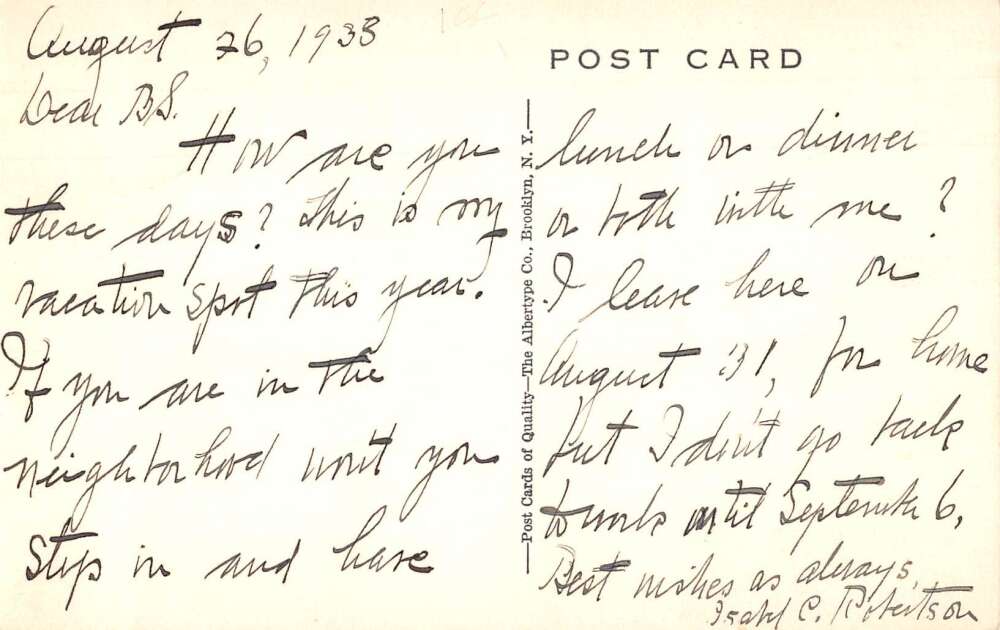 August 26, 1938
Dear BS.
How are you
these days? This is my
vacation spot this year.
If you are in the
neighborhood won't you
stop in and have
POST CARD
—Post Cards of Quality—The Albertype Co., Brooklyn, N. Y.—
lunch or dinner
or both with me?
I leave here on
August 31, for home
but I don't go back
to work until September 6.
Best wishes as always,
Isabel C. Robertson